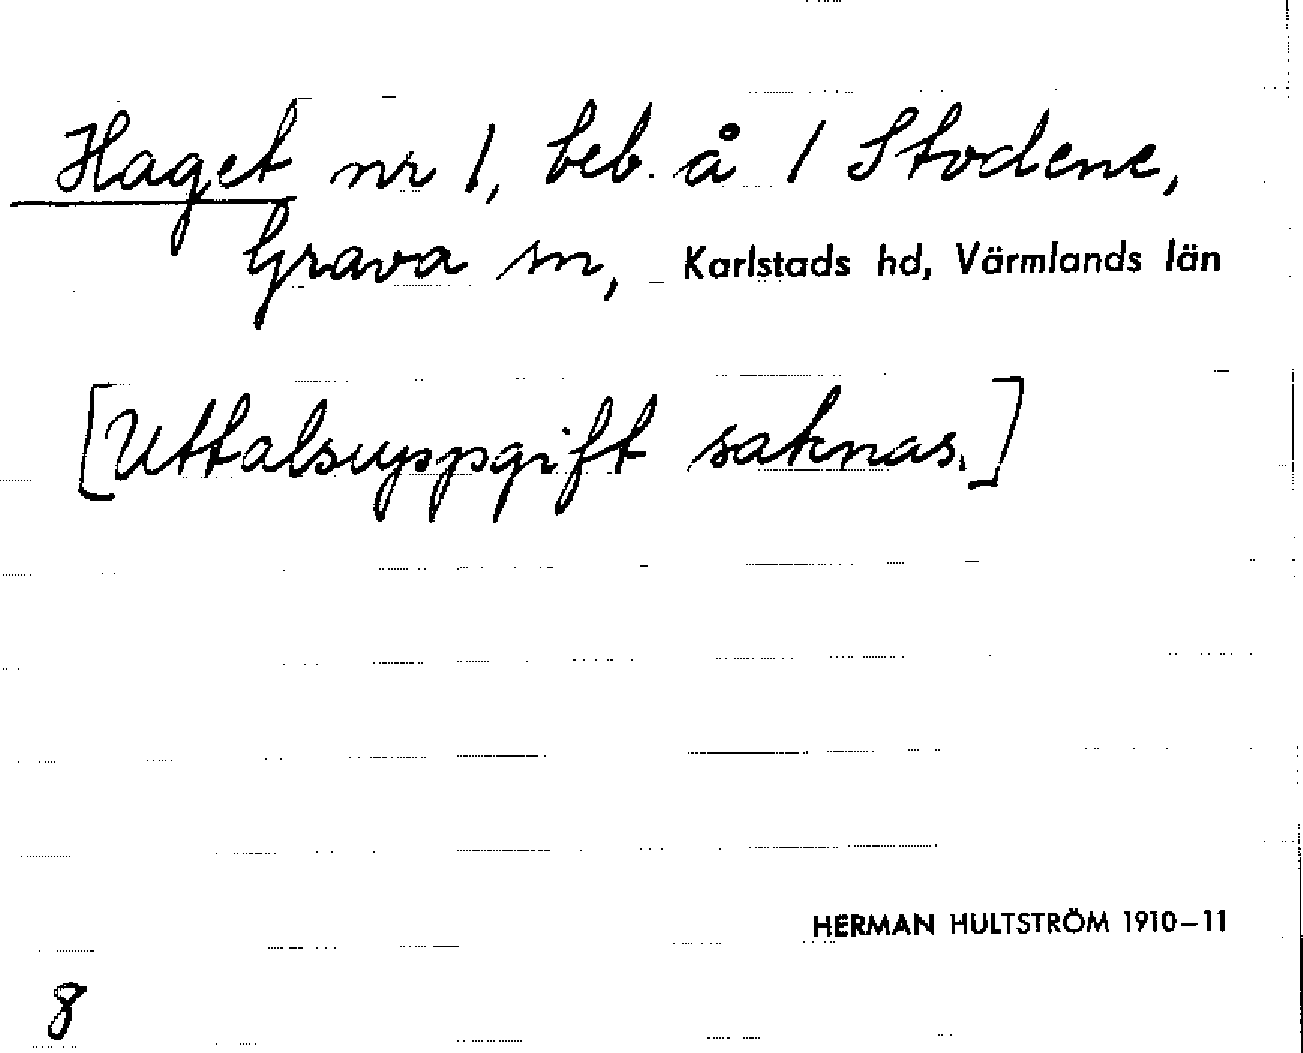 Haget nr 1, beb. å 1 Stodene,
Grava sn, Karlstads hd, Värmlands län
[Uttalsuppgift saknas.]
HERMAN HULTSTRÖM 1910–11
8